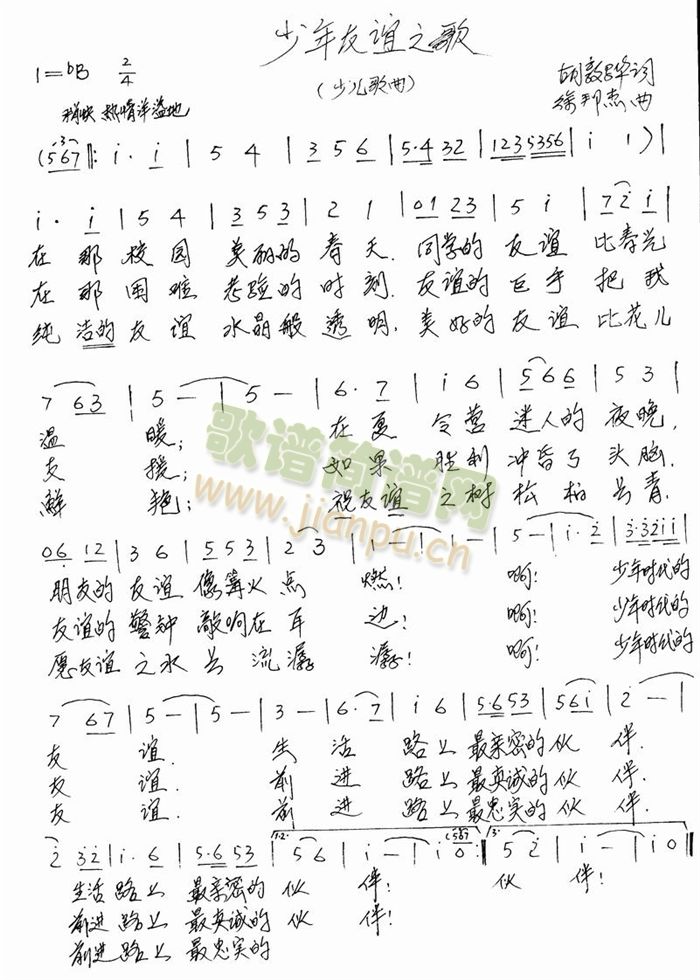 少年友谊之歌
(少儿歌曲)
1=bB 2/4
胡敦骅词
徐邦杰曲
稍快 热情洋溢地
(567 ‖: i· i | 5 4 | 3 5 6 | 5·4 32 | 123 5356 | i 1 ) |
i· i | 5 4 | 3 5 3 | 2 1 | 01 23 | 5 i | 7 2 i |
在那校园 美丽的春天.同学的友谊 比春光
在那困难 考验的时刻.友谊的巨手 把我
纯洁的友谊 水晶般透明.美好的友谊 比花儿
7 63 | 5 — | 5 — | 6· 7 | i 6 | 5 6 6 | 5 3 |
温暖; 在夏令营 迷人的夜晚,
支援; 如果胜利 冲昏了头脑.
鲜艳; 祝友谊之树 松柏长青.
歌谱简谱网
www.jianpu.cn
06 12 | 3 6 | 5 5 3 | 2 3 | 1 — | 1 — | 5 — | i· 2 | 3·3 2 i i |
朋友的友谊 像篝火点燃! 啊! 少年时代的
友谊的警钟 敲响在耳边! 啊! 少年时代的
愿友谊之水长流潺潺! 啊! 少年时代的
7 67 | 5 — | 5 — | 3 — | 6· 7 | i 6 | 5·6 53 | 5 6 i | 2 — |
友谊. 生活路上 最亲密的伙伴.
友谊. 前进路上 最真诚的伙伴.
友谊. 前进路上 最忠实的伙伴.
2 32 | i· 6 | 5·6 53 | 1.2. 5 6 | i — | i 0 :‖ 3. 5 2 | i — | i 0 ‖
生活路上 最亲密的伙伴! 伙伴!
前进路上 最真诚的伙伴!
前进路上 最忠实的